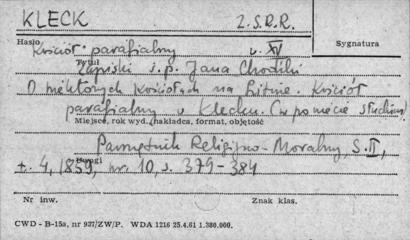 KLECK Z.S.R.R.
Hasło
Kościół parafialny w. XV
Sygnatura
Tytuł
Zapiski ś.p. Jana Chodźki
O niektórych kościołach na Litwie. Kościół
parafialny w Klecku. (w powiecie słuckim)
Miejsce, rok wyd., nakładca, format, objętość
Pamiętnik Religijno-Moralny, S.II,
Uwagi
t. 4, 1859, nr. 10, s. 379-384
Nr inw. Znak klas.
CWD - B-15a, nr 937/ZW/P. WDA 1216 25.4.61 1.380.000.